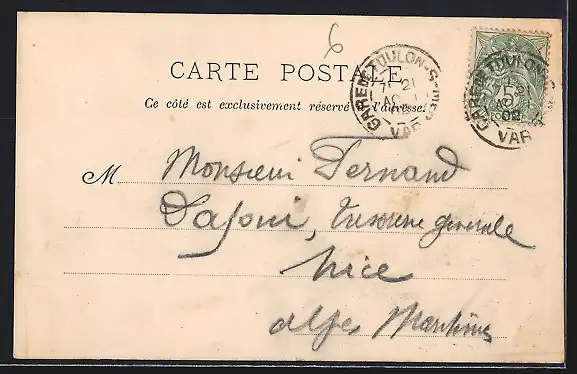 6
CARTE POSTALE
Ce côté est exclusivement réservé à l'adresse.
GARE DE TOULON-S-MER
7E 21
AO
02
VAR
GARE DE TOULON-S
21
5
AO
02
VAR
M Monsieur Fernand
Dafoni, Tresorerie generale
Nice
Alpes Maritimes